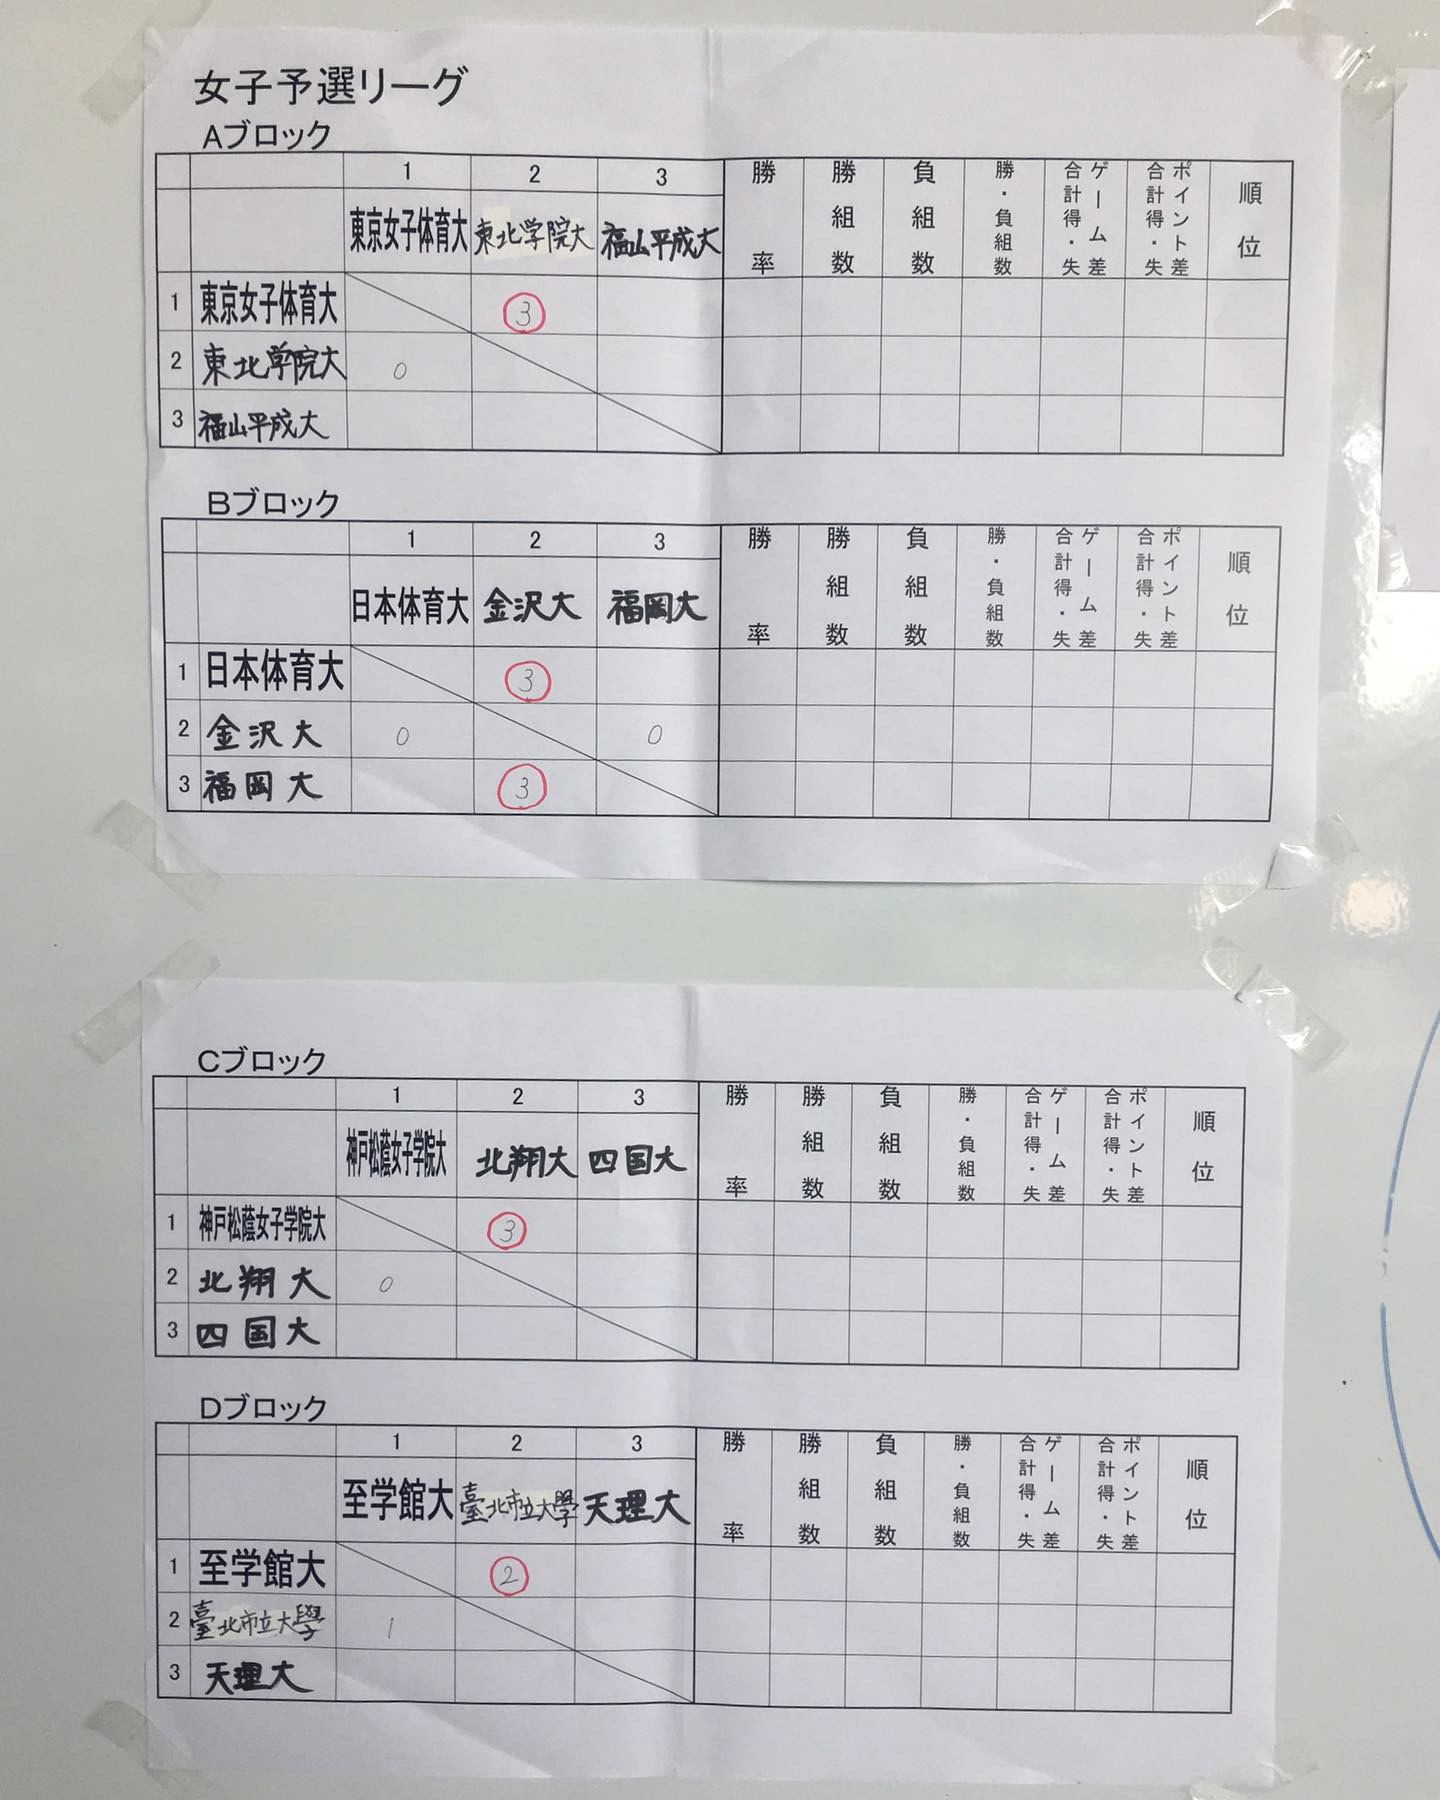 女子予選リーグ
Aブロック
1 2 3 勝率 勝組数 負組数 勝・負組数 ゲーム差合計得・失 ポイント差合計得・失 順位
東京女子体育大 東北学院大 福山平成大
1 東京女子体育大 3
2 東北学院大 0
3 福山平成大
Bブロック
1 2 3 勝率 勝組数 負組数 勝・負組数 ゲーム差合計得・失 ポイント差合計得・失 順位
日本体育大 金沢大 福岡大
1 日本体育大 3
2 金沢大 0 0
3 福岡大 3
Cブロック
1 2 3 勝率 勝組数 負組数 勝・負組数 ゲーム差合計得・失 ポイント差合計得・失 順位
神戸松蔭女子学院大 北翔大 四国大
1 神戸松蔭女子学院大 3
2 北翔大 0
3 四国大
Dブロック
1 2 3 勝率 勝組数 負組数 勝・負組数 ゲーム差合計得・失 ポイント差合計得・失 順位
至学館大 臺北市立大學 天理大
1 至学館大 2
2 臺北市立大學 1
3 天理大